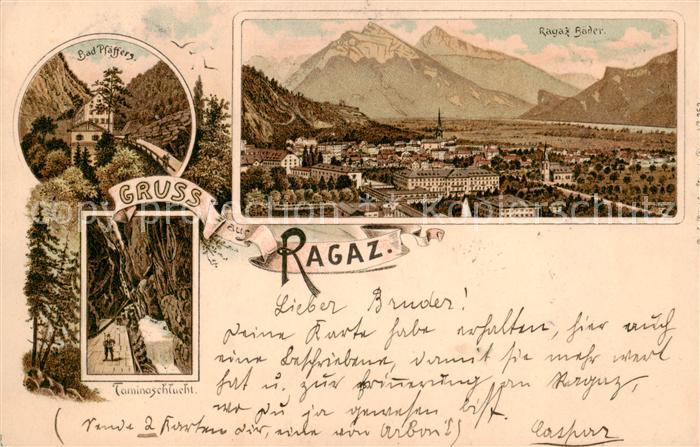 Bad Pfäffers.
Ragaz Bäder.
GRUSS
aus
RAGAZ.
Taminaschlucht.
Lieber Bruder!
Deine Karte habe erhalten, hier auch
eine Beschriebene, damit sie mehr wert
hat u. zur Erinnerung an Ragaz,
wo Du ja gewesen bist.
(Sende 2 Karten dir, eine von Arbon!) Caspar